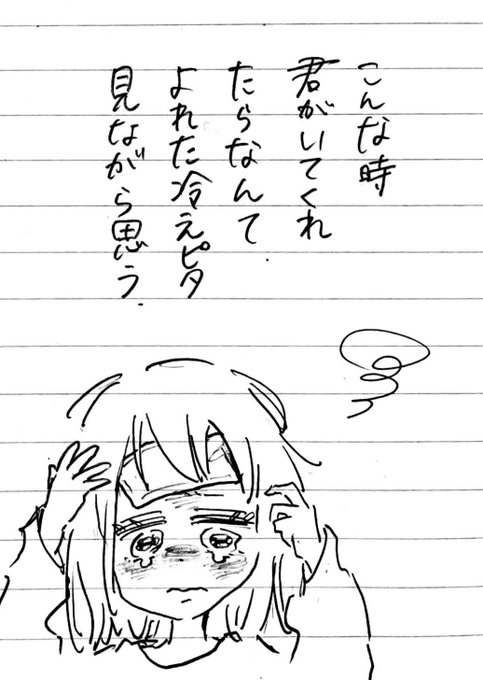 こんな時
君がいてくれ
たらなんて
よれた冷えピタ
見ながら思う.